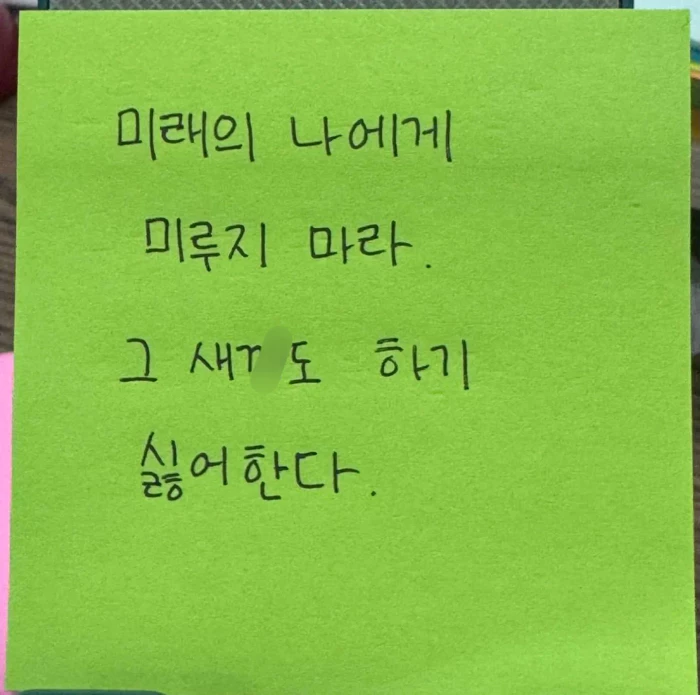 미래의 나에게
미루지 마라.
그 하기
싫어한다.